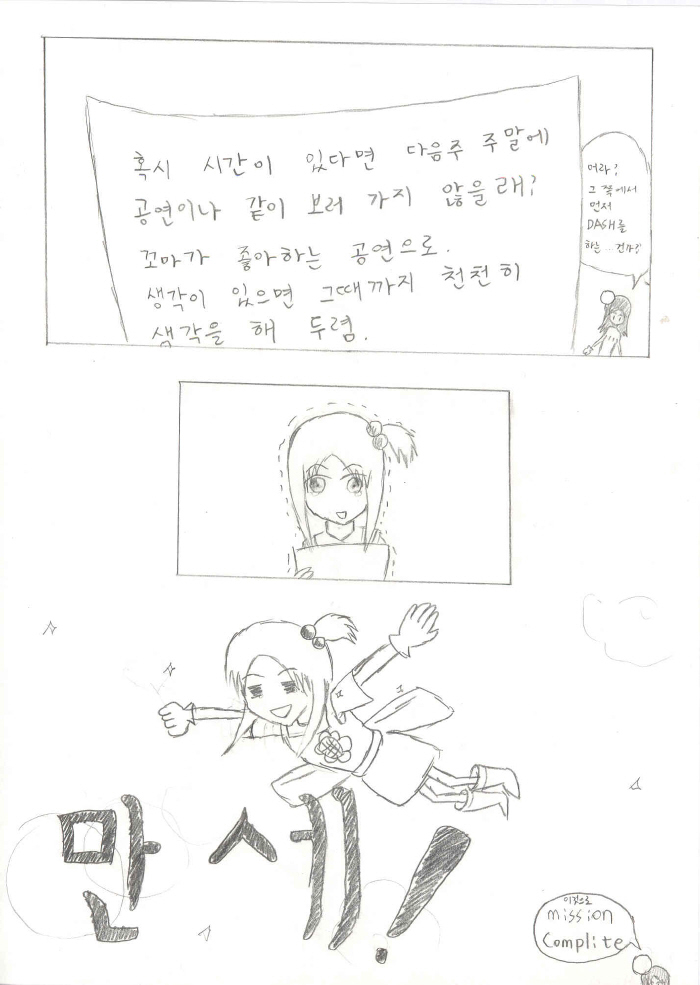 혹시 시간이 있다면 다음주 주말에
공연이나 같이 보러 가지 않을래?
꼬마가 좋아하는 공연으로.
생각이 있으면 그때까지 천천히
생각을 해 두렴.
머라?
그 쪽에서
먼저
DASH를
하는...건가?
만세!
이것으로
mission
Complite